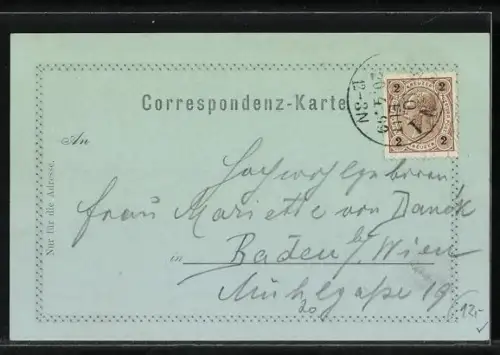 Correspondenz-Karte
2 2
2 2
An
Hochwohlgeboren
Frau Mariette von
in Baden b/ Wien
Mühlgaße 19
Nur für die Adresse.
12.-